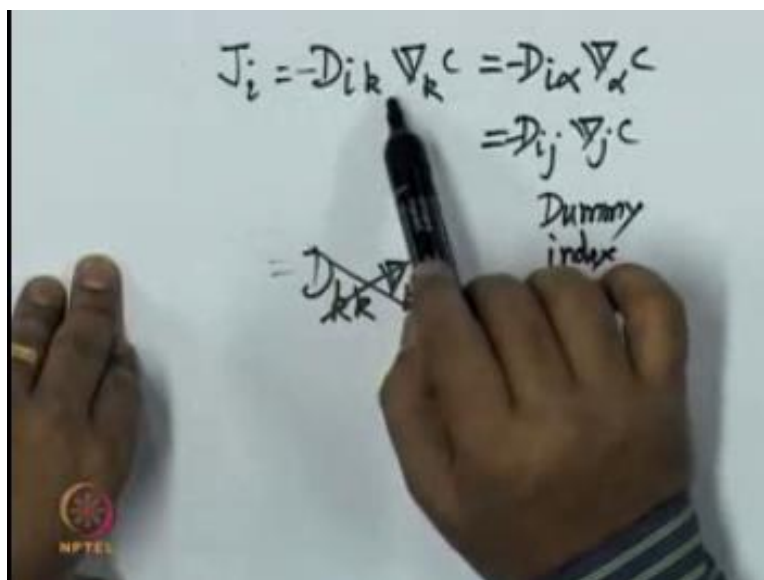 J_i = -D_{ik} ∇_k C = -D_{iα} ∇_α C
= -D_{ij} ∇_j C
Dummy
index
= D_{kk} ∇
NPTEL